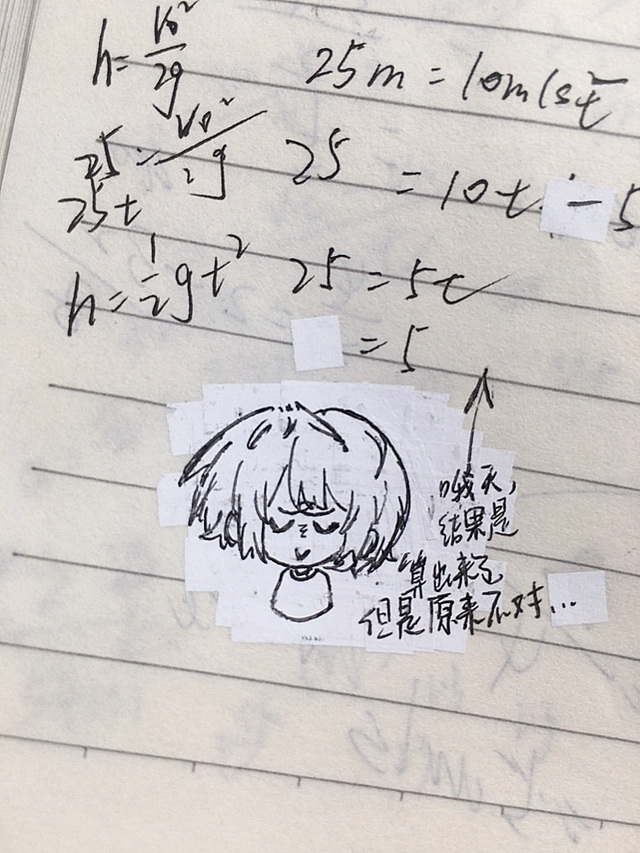 h = v₀²/2g
25m = 10m/s t
25 = v₀²/2g
25 = 10t - 5
25t
h = 1/2 g t²
25 = 5t
= 5
哦天,
结果是
算出来了
但是原来不对...